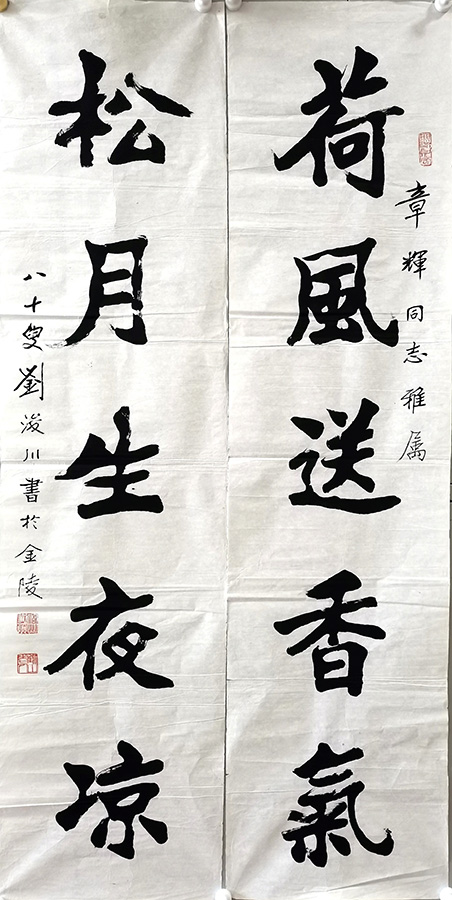 章輝同志雅属
荷風送香氣
松月生夜凉
八十叟劉浚川書於金陵